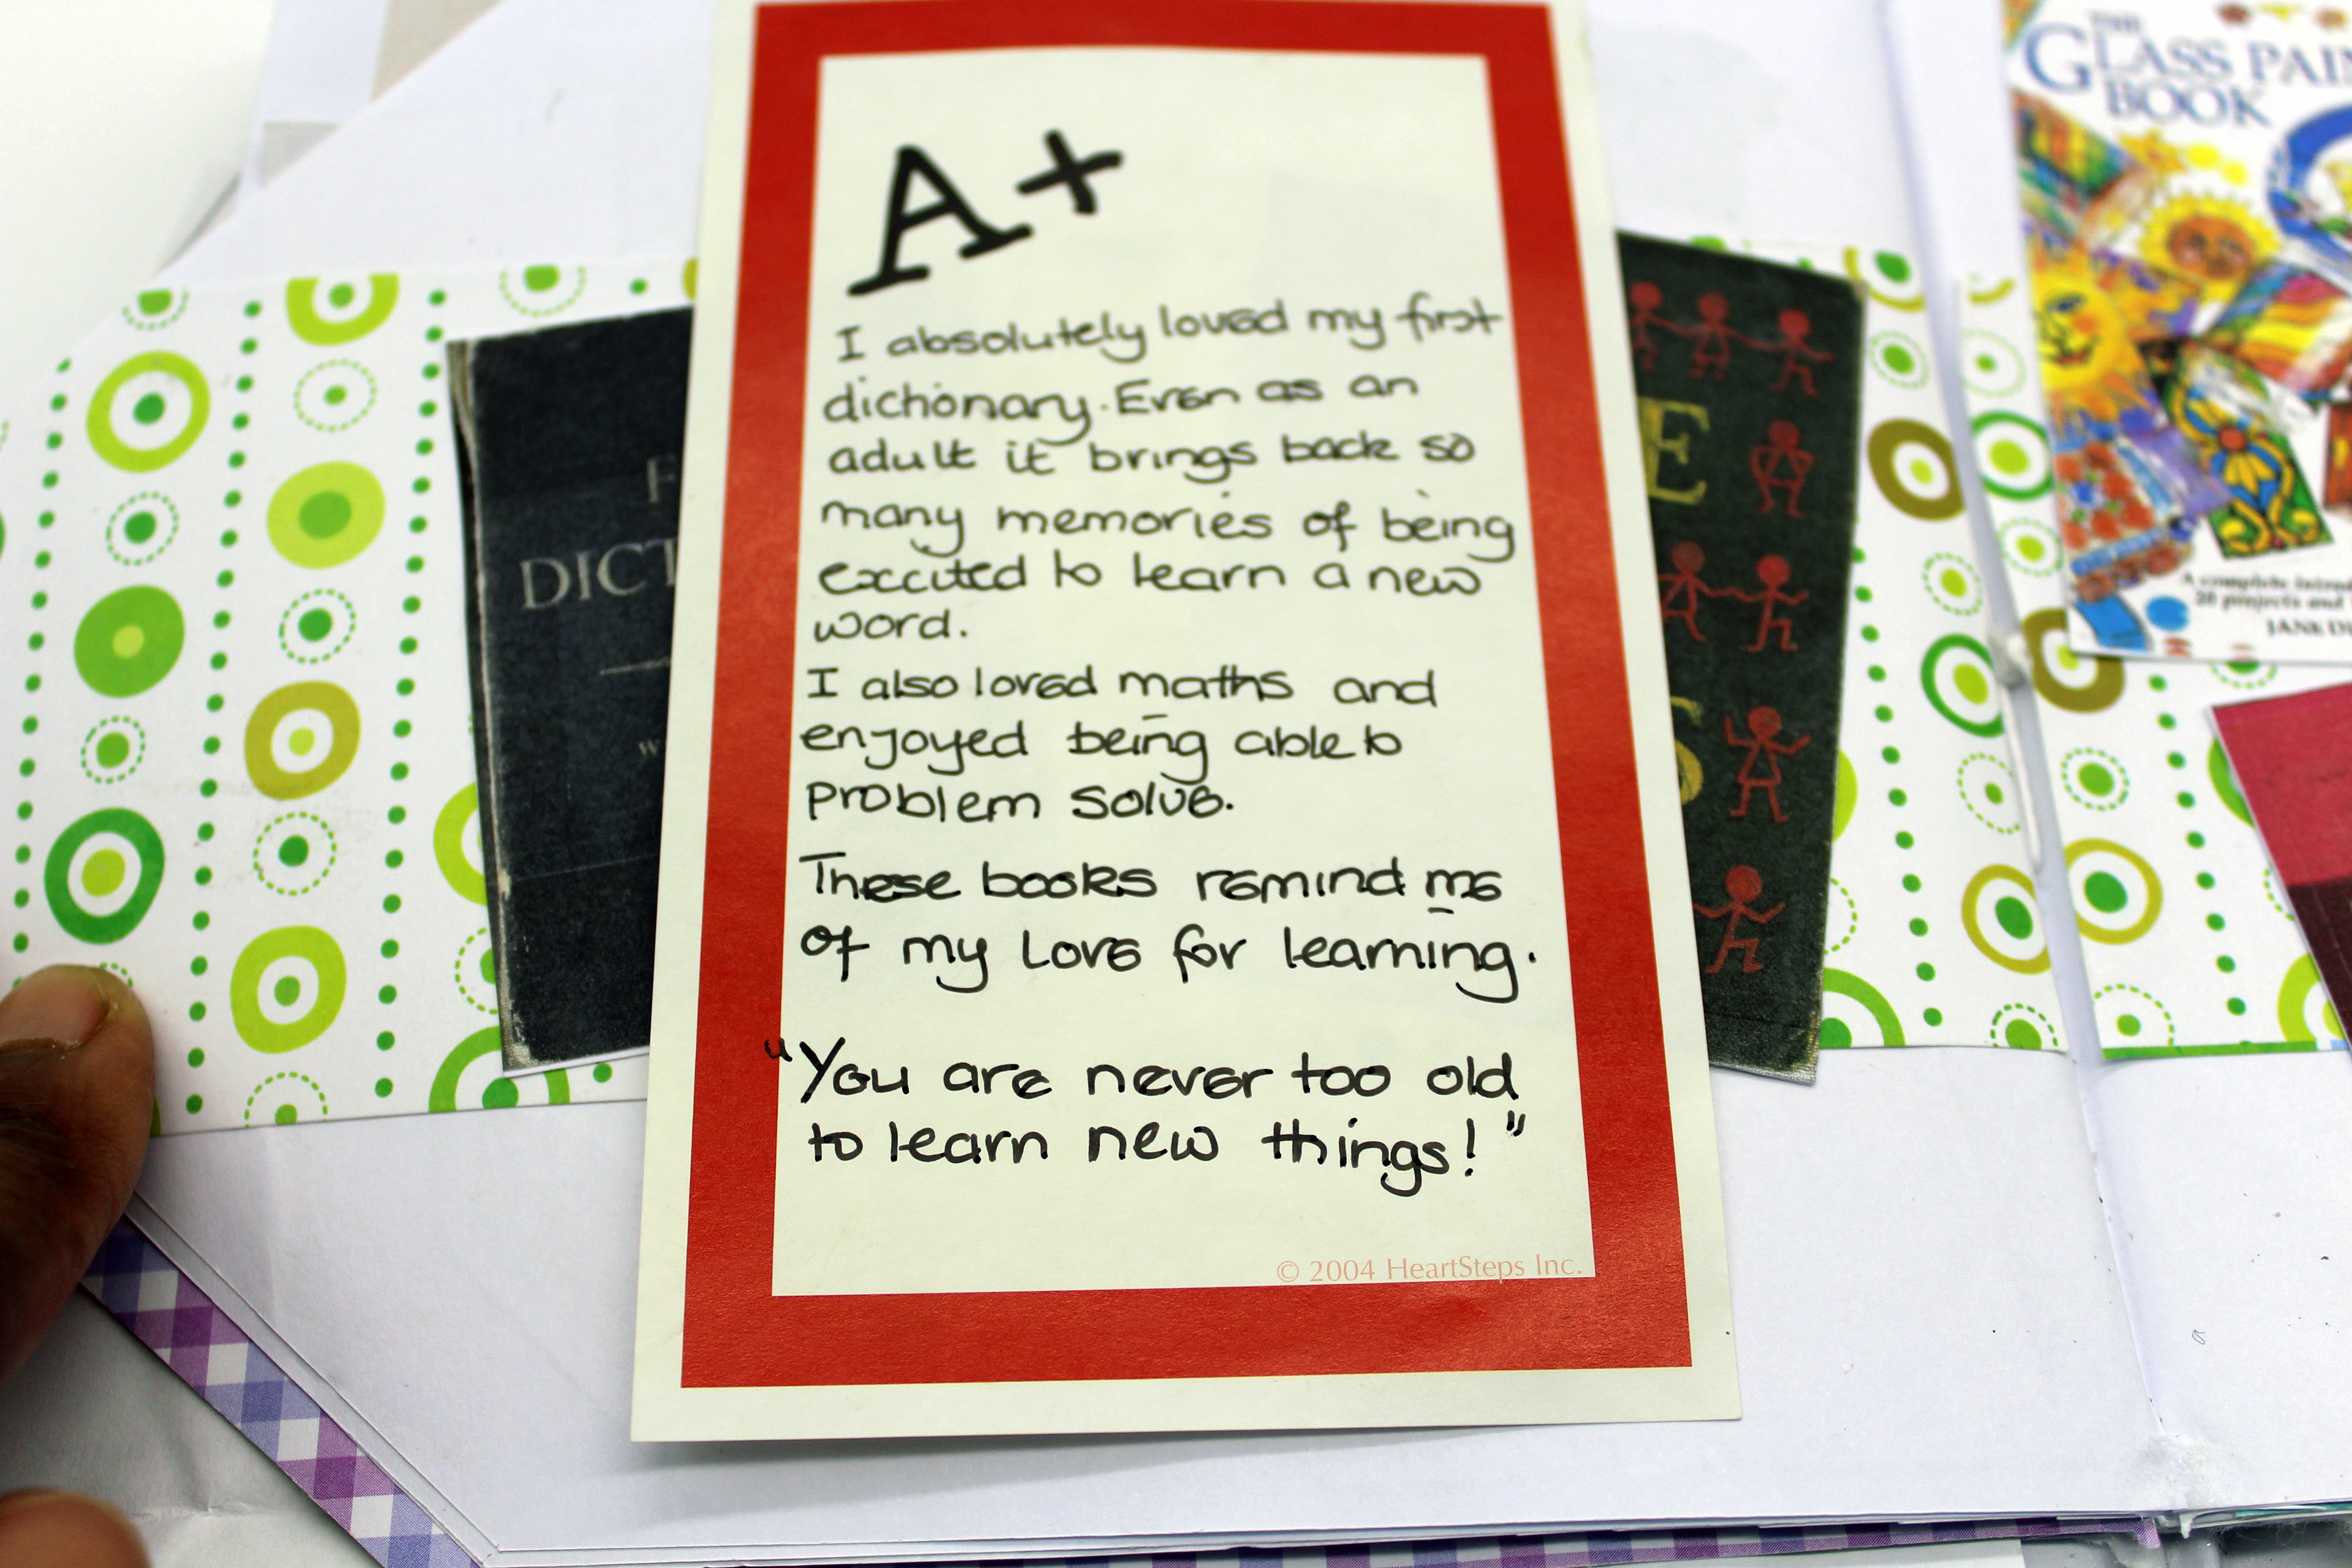 A+
I absolutely loved my first
dictionary. Even as an
adult it brings back so
many memories of being
excited to learn a new
word.
I also loved maths and
enjoyed being able to
problem solve.
These books remind me
of my Love for learning.
"You are never too old
to learn new things!"
© 2004 HeartSteps Inc.
F
DICT
W
E
S
THE
GLASS PAIN
BOOK
A complete
20 projects and
JANE